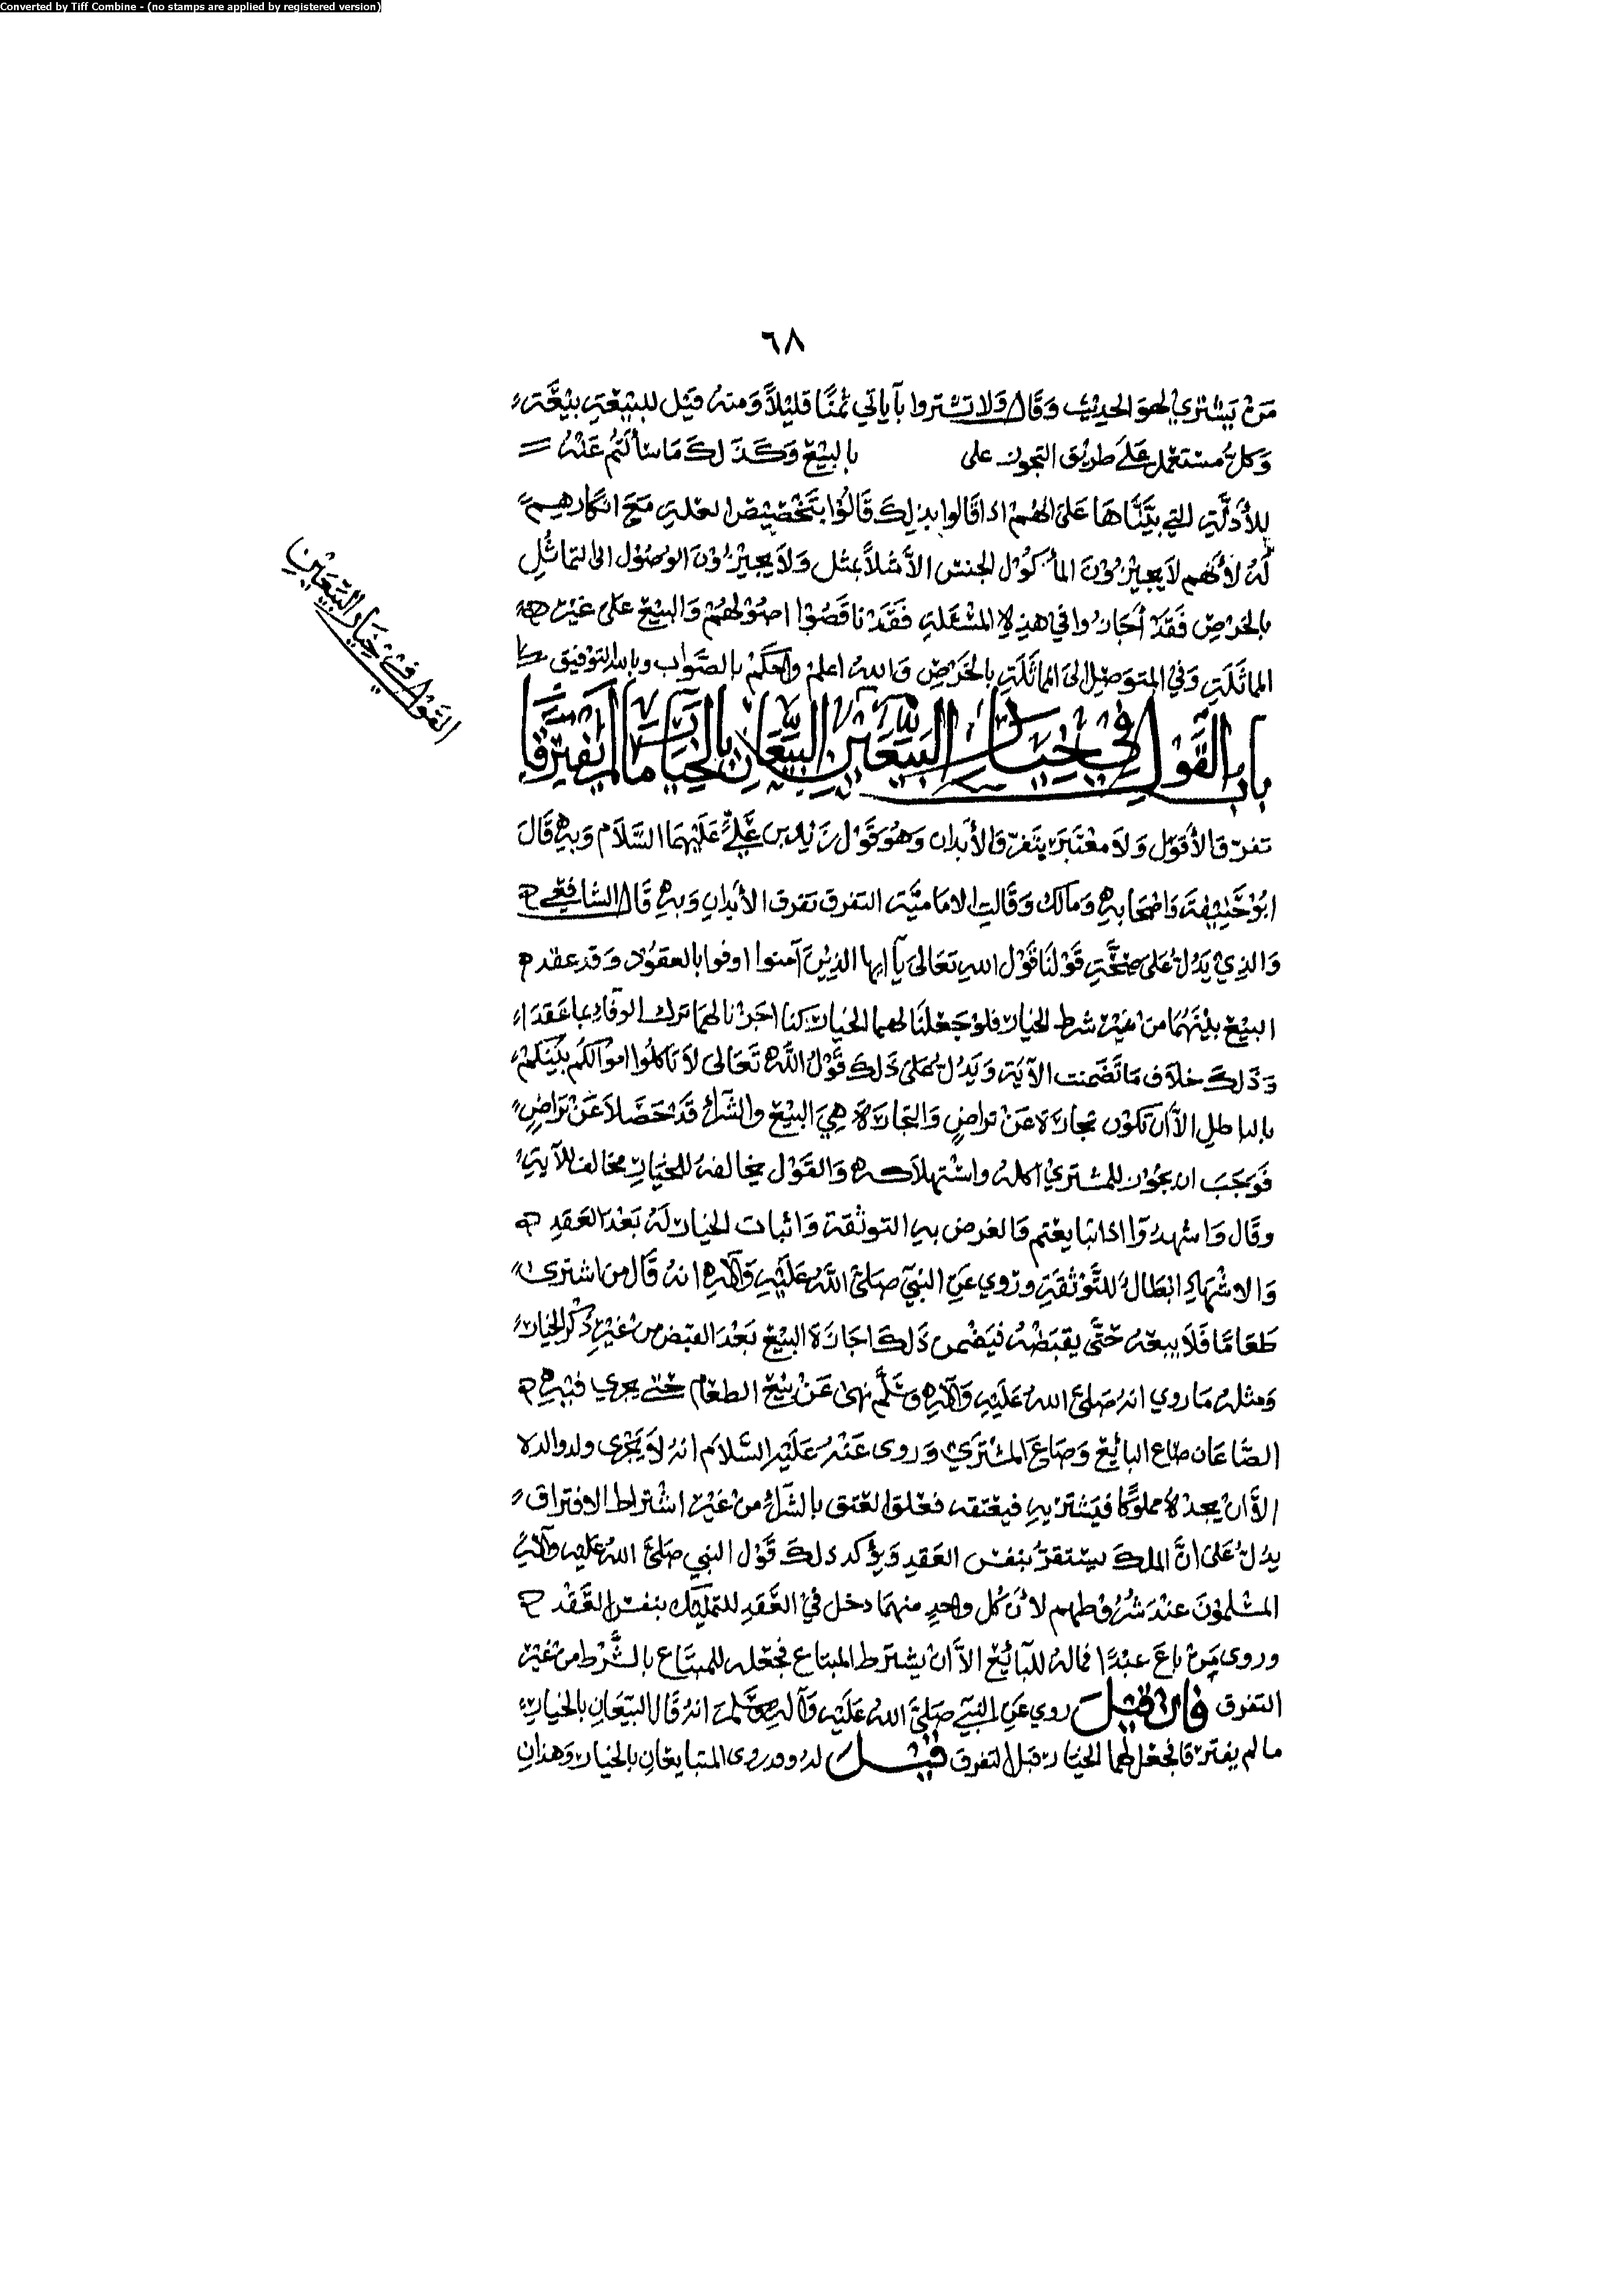 Converted by Tiff Combine - (no stamps are applied by registered version)
٦٨
مَنْ يَشْتَرِي لهوَ الحديث وَقَال وَلا تشتروا بآياتي ثمنًا قليلاً وَمنه قيْل للبيْعَةِ بيْعَة
وَكلٌ مستعمل عَلىَ طريق التجوز على بالبيْع وَكَذَلكَ مَا سَألتُم عَنْهُ =
لِلأدلَّةِ التي بيَّنَّاهَا عَلىَ انهُمْ اذا قالوا بذلِكَ قَالُوْا بتَخصْيْصْ العلةِ مَعَ انكارهِم
لَهُ لأَنهُم لاَ يجيْزُوْنَ المأكوْل الجنسْ الاَّ مثلاً بمثل وَلاَ يجيْزُوْنَ الوصُوْل الى التماثُلِ
بالخرْصِ فَقدْ أَجَازُوا في هذِهِ المسْئَلةِ فَقَدْ نَاقَضُوْا اصُوْلهُمْ وَالبيْع علىَ غيْر هذه
المماثَلَةِ وَفي المتوَصّلِ الىَ المماثَلَةِ بالخَرْصِ وَاللهُ اعلمُ وَاحكَمْ بالصَّوَاب وبالله التوفيق
بابُ القَوْل فِي خِيَارِ البَيِّعَيْنِ البَيِّعَانِ بالخِيَارِ مَا لَمْ يَفْتَرِقَا
تفرّقا الأقوَال وَلاَ معْتَبَرَ بتَفرّق الأَبدَان وَهُوَ قَوْل زَيْدِ بن عَليٍّ عَلَيْهِمَا السَّلاَم وَبهِ قَالَ
ابُوْ حَنيْفَةَ وَاصْحَابهِ وَمَالك وَقَالتِ الامَاميَّة التفرق تفرق الأَبْدَان وَبهِ قَال الشَافِعِي
وَالذِيْ يَدُلّ عَلىَ صحَّةِ قَوْلنَا قَوْل اللهِ تعَالىَ يَآ ايها الذِيْنَ آمنوا اوفوا بالعقوْد وَقد عقد
البيْعَ بيْنَهُمَا منْ غيْر شرطِ الخيَار فلوْ جعَلنَا لهما الخيَار كنا اجزْنا لهمَا ترك الوفَاء بما عَقدَاه
وَذَلِكَ خلاَف مَا تضَمنت الآيَة وَيَدُلّ عَلىَ ذَلكَ قَوْلُ اللّه تعَالىَ لاَ تَاكلُوا امْوَالكُم بيْنكُمْ
بالباطلِ الاَّ ان تَكُوْن تجارَة عَنْ تراضٍ وَالتجارَة هِيَ البيْعُ وَالشراءُ قَدْ حَصَلاَ عَنْ تَرَاضٍ
فَوَجَبَ ان يجُوْز للمشتريْ اكله وَاسْتهلاَكه وَالقَوْل بمخالفه للخيَارِ مخالف للآيةِ
وقَال وَاشهدُوْآ اذا تبَايعْتم وَالغرض بهِ التوثقة وَاثبات الخيَار لَهُ بَعْدَ العَقدِ
وَالاشْهَادِ ابْطَالٌ للتَّوْثقَةِ ورُوِي عَنِ النبيّ صَلىَ اللّهُ عَلَيْهِ وَآلهِ انهُ قَال من اشترى
طَعَامًا فَلا يبعْه حَتّىَ يقبضْهُ فيَضْمن ذَلكَ اجَازَة البيْعَ بَعْدَ القبْض من غيْرِ ذكْر الخيَار
وَمثله مَا روي انهُ صَلىَ اللهُ عَلَيْهِ وَآلهِ وَسَلَّمَ نهىَ عَنْ بيْع الطعَام حَتى يجري فيْهِ
الصَّاعَان صاع البَائع وَصَاعَ المشْترَيْ وَروىَ عَنْهُ عَلَيْهِ السَّلاَم انهُ لاَ يَجْزِى ولد والده
الاَّ انْ يجدْهُ مملوكًا فيَشتريهِ فيعْتقه فعْلق العْتق بالشراءْ منْ غيْر اشْتراط الافتراق
يدُلّ عَلىَ انَّ الملكَ يستقرُّ بنفسْ العَقدِ وَيؤكد ذلكَ قَوْل النبي صَلىَ اللهُ عَليْه وَآله
المسْلموْنَ عنْدَ شُرُوْطهم لأنّ كُل وَاحدٍ منهمَا دخل فيْ العَّقدِ للتمليْك بنفسْ العَّقْد
وروىَ مَنْ باعَ عبْدًا فمالهُ للبَائعْ الاَّ انْ يشترط المبتاع فجعْله للمبتَاع بالشَّرْط من غيْر
التفرق فإن قيْلَ روي عَنِ النبَّيِ صَلىَ اللهُ عَلَيْه وَآلهِ وَسَلَمَ انهُ قَال البيّعَانِ بالخيَارِ
ما لم يفترقا فجعَل لهما الخيَار قبْل التفرق قيْل لهُ وقد روى المتبايعْانِ بالخيَار وَهذانِ
القَوْل في خيَار البَيِّعَيْن